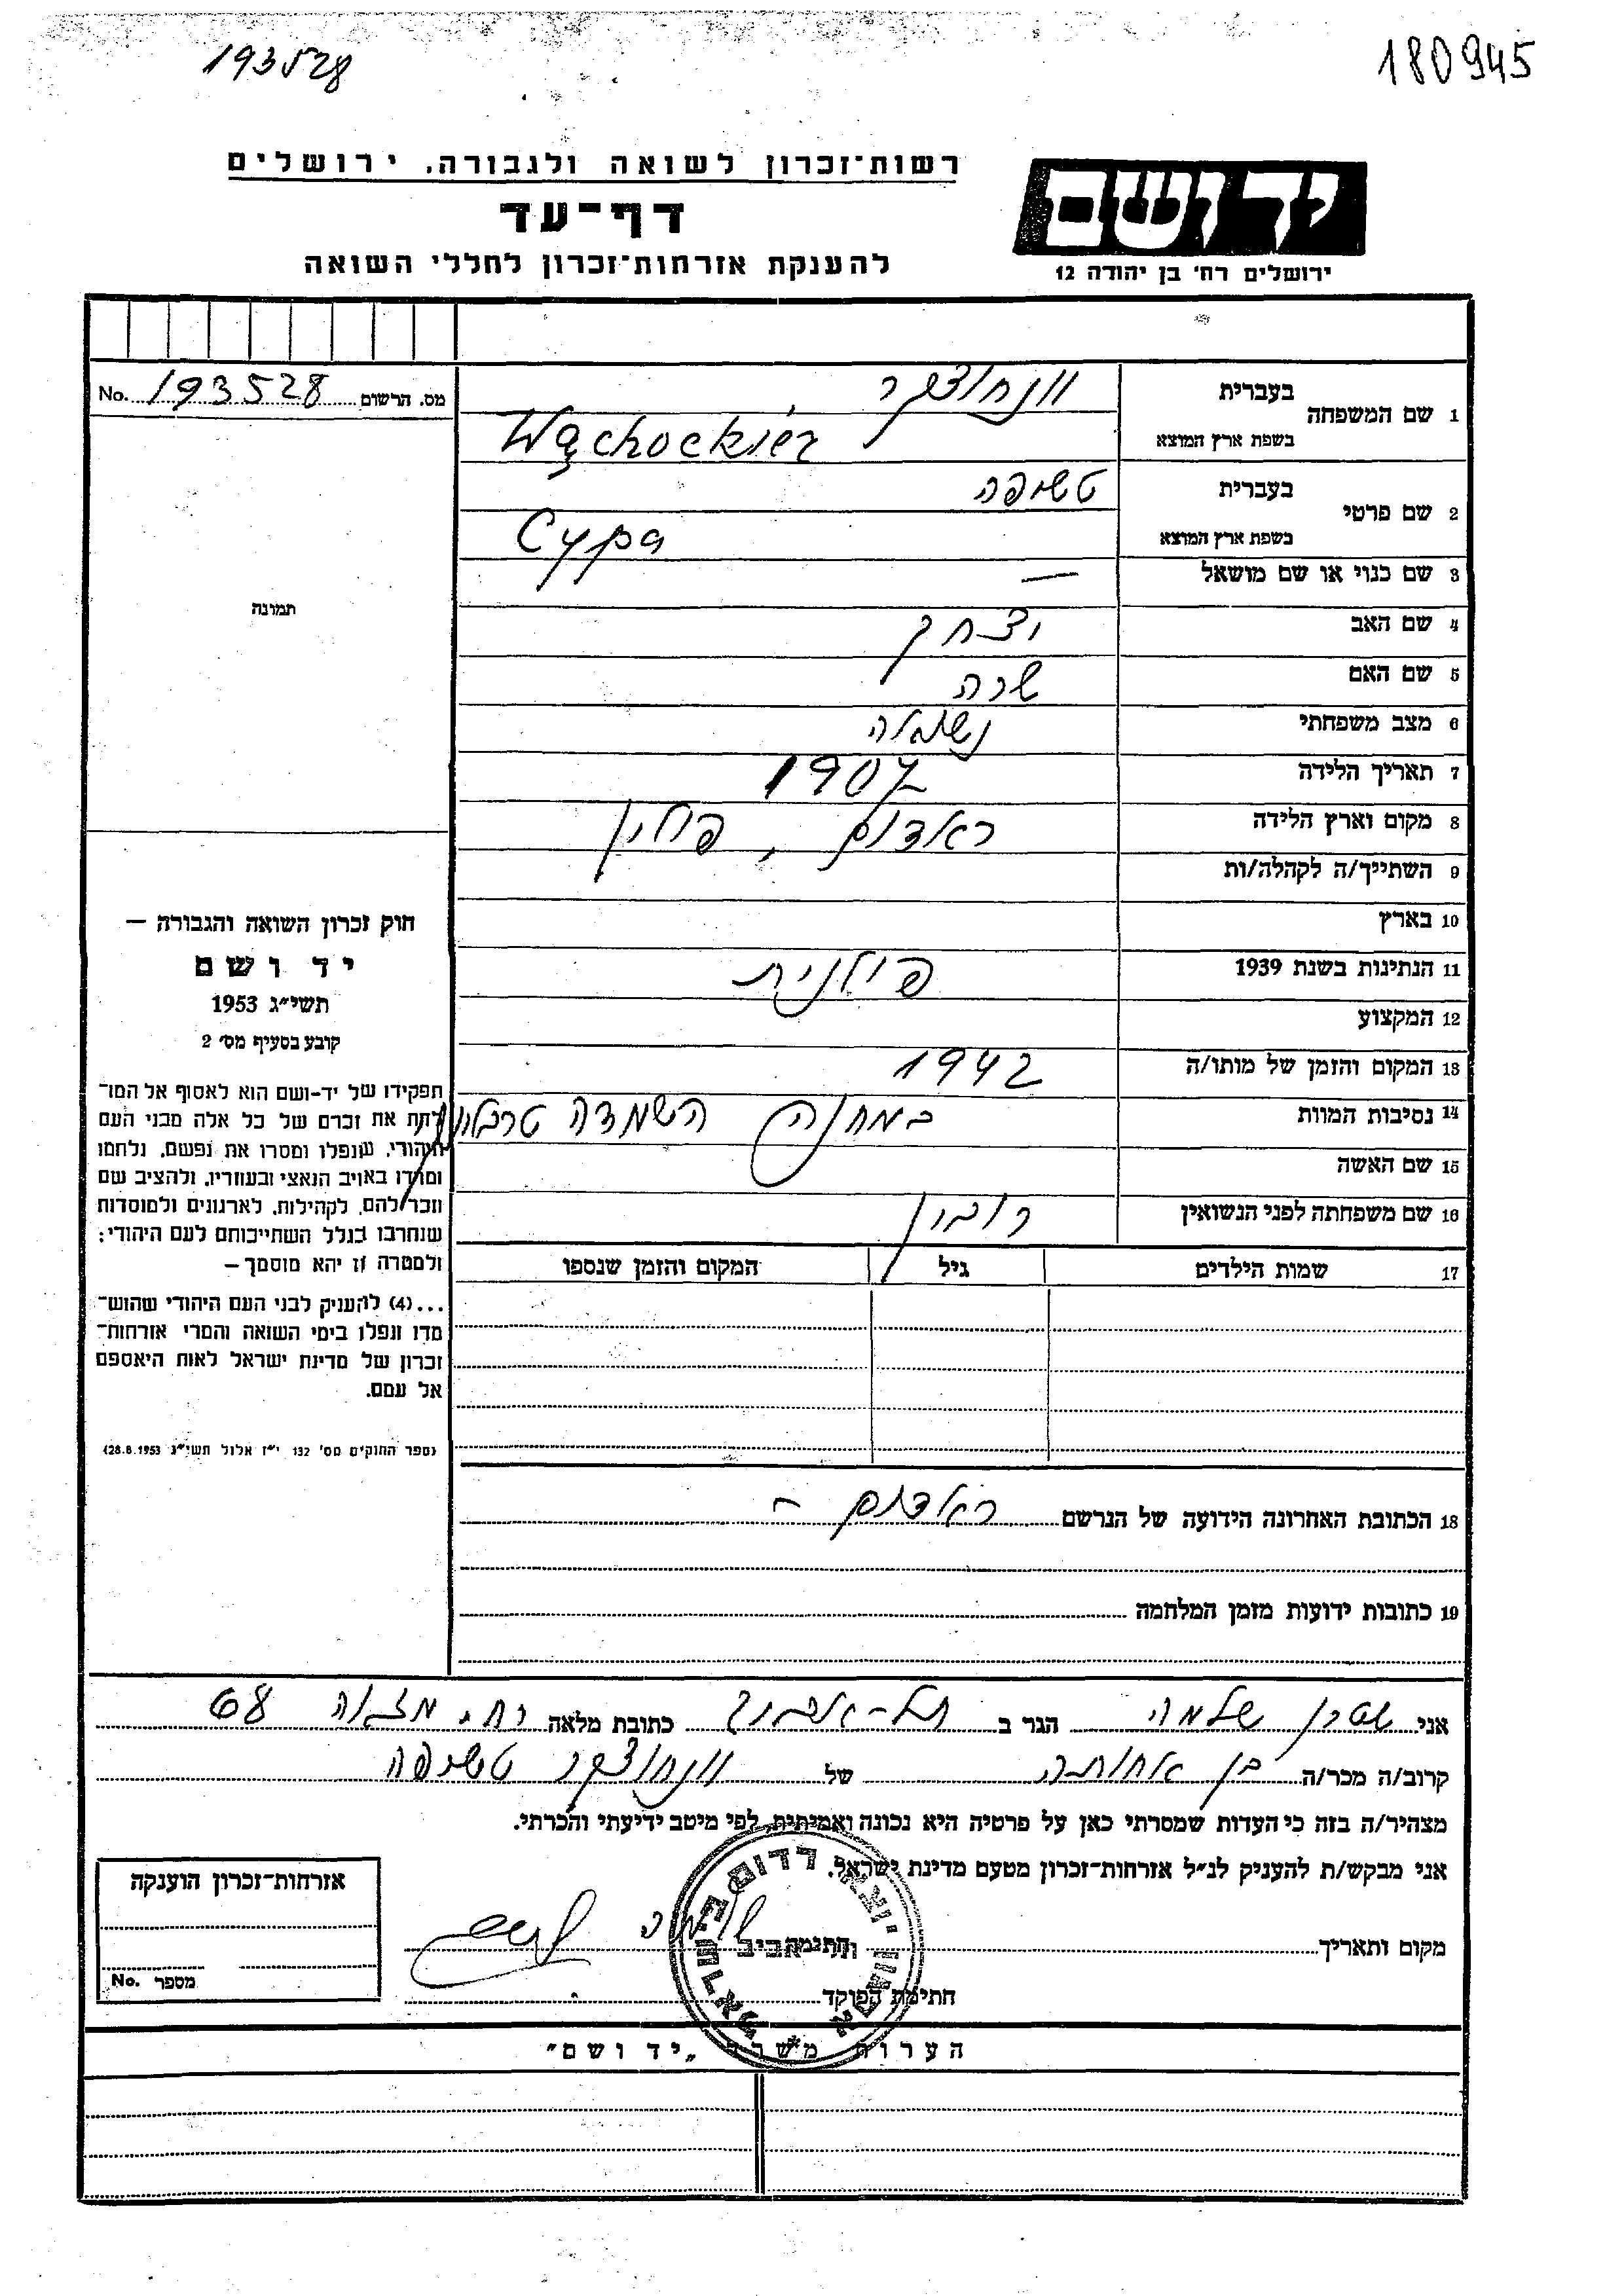 193528
180945
רשות־זכרון לשואה ולגבורה, ירושלים
יד ושם
דף־עד
להענקת אזרחות־זכרון לחללי השואה
ירושלים רח' בן יהודה 12
No. 193528 מס. הרשום
תמונה
חוק זכרון השואה והגבורה —
יד ושם
תשי״ג 1953
קובע בסעיף מס׳ 2
תפקידו של יד-ושם הוא לאסוף אל המו־
לדת את זכרם של כל אלה מבני העם
היהודי, שנפלו ומסרו את נפשם, נלחמו
ומרדו באויב הנאצי ובעוזריו, ולהציב שם
וזכר להם, לקהילות, לארגונים ולמוסדות
שנחרבו בגלל השתייכותם לעם היהודי;
ולמטרה זו יהא מוסמך —
...(4) להעניק לבני העם היהודי שהוש־
מדו ונפלו בימי השואה והמרי אזרחות־
זכרון של מדינת ישראל לאות היאספם
אל עמם.
(ספר החוקים מס' 132 י״ז אלול תשי״ג 28.8.1953)
1 שם המשפחה
בעברית וונחוצקר
בשפת ארץ המוצא Wąchockier
2 שם פרטי
בעברית טשיפה
בשפת ארץ המוצא Cypa
3 שם כנוי או שם מושאל —
4 שם האב יצחק
5 שם האם שרה
6 מצב משפחתי נשואה
7 תאריך הלידה 1907
8 מקום וארץ הלידה ראדום, פולין
9 השתייך/ה לקהלה/ות
10 בארץ
11 הנתינות בשנת 1939 פולנית
12 המקצוע
13 המקום והזמן של מותו/ה 1942
14 נסיבות המוות במחנה השמדה טרבלינקה
15 שם האשה
16 שם משפחתה לפני הנשואין רובין
17 שמות הילדים גיל המקום והזמן שנספו
18 הכתובת האחרונה הידועה של הנרשם ראדום -
19 כתובות ידועות מזמן המלחמה
אני שלמה הגר ב תל-אביב כתובת מלאה רח. מזאה 68
קרוב/ה מכר/ה בן אחותה של וונחוצקר טשיפה
מצהיר/ה בזה כי העדות שמסרתי כאן על פרטיה היא נכונה ואמיתית, לפי מיטב ידיעתי והכרתי.
אני מבקש/ת להעניק לנ״ל אזרחות-זכרון מטעם מדינת ישראל.
מקום ותאריך חתימה שלמה
חתימת הפוקד
ארגון יוצאי רדום בישראל
תל אביב
אזרחות-זכרון הוענקה
No. מספר
הערות משרד „יד ושם״